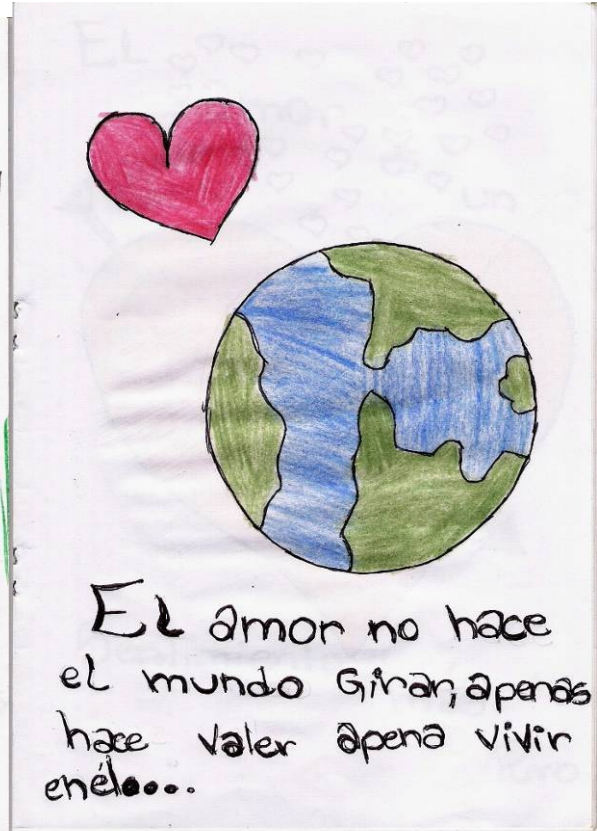 El amor no hace
el mundo Girar, apenas
hace valer apena vivir
enél....